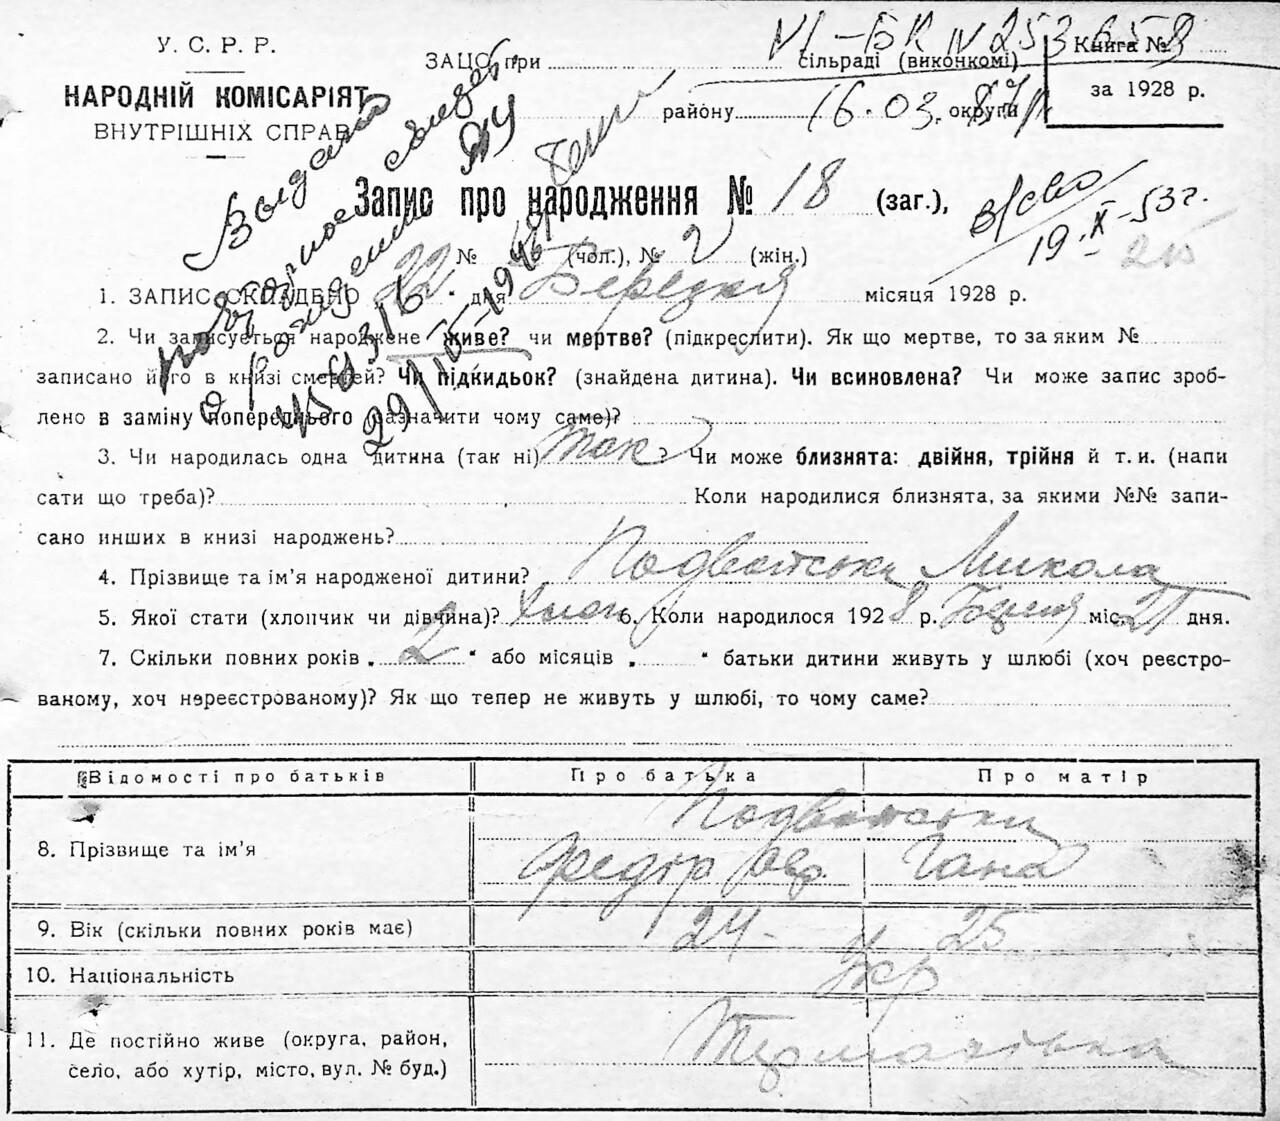 VI-БК № 253658
У. С. Р. Р.
НАРОДНІЙ КОМІСАРІЯТ
ВНУТРІШНІХ СПРАВ
ЗАЦС при сільраді (виконкомі)
району округи
16.03.
Книга №
за 1928 р.
Выдано
повторное свидет
о рождении
29/III-1948
19.X-53г.
Запис про народження № 18 (заг.),
№ (чол.), № 2 (жін.)
1. ЗАПИС СКЛАДЕНО 22 " дня Березня місяця 1928 р.
2. Чи записується народжене живе? чи мертве? (підкреслити). Як що мертве, то за яким №
записано його в книзі смертей? Чи підкидьок? (знайдена дитина). Чи всиновлена? Чи може запис зроб-
лено в заміну попереднього (зазначити чому саме)?
3. Чи народилась одна дитина (так ні) Так ? Чи може близнята: двійня, трійня й т. и. (напи
сати що треба)? Коли народилися близнята, за якими №№ запи-
сано инших в книзі народжень?
4. Прізвище та ім'я народженої дитини? Подвотськи Микола
5. Якої стати (хлопчик чи дівчина)? Хлоп 6. Коли народилося 1928 р. Березня міс 21 дня.
7. Скільки повних років „ 2 " або місяців „ " батьки дитини живуть у шлюбі (хоч реєстро-
ваному, хоч нереєстрованому)? Як що тепер не живуть у шлюбі, то чому саме?
Відомості про батьків Про батька Про матір
8. Прізвище та ім'я Подвотськи
Федір Гана
9. Вік (скільки повних років має) 24 25
10. Національність Укр
11. Де постійно живе (округа, район,
село, або хутір, місто, вул. № буд.) Термахівка